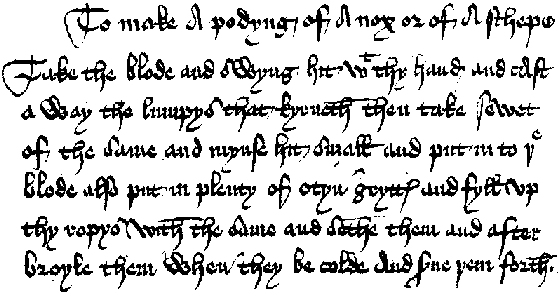 To make A podyng of A nox or of A schepe
Take the blode and swyng hit wt thy hand and cast
a way the lumpys that kyrneth then take sewet
of the same and mynse hit small and put in to ye
blode also put in plenty of otyn grytt and fyll vp
thy ropys with the same and sethe them and after
broyle them when they be colde and serue them forth.